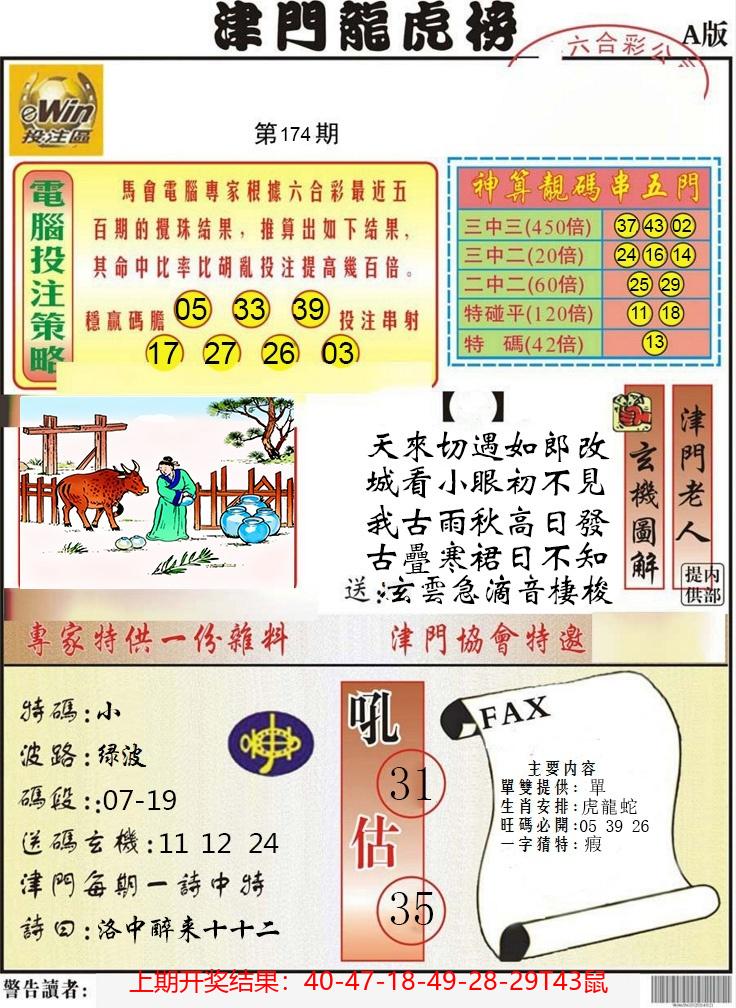 津門龍虎榜
A版
六合彩公
eWin
投注區
第174期
電腦投注策略
馬會電腦專家根據六合彩最近五
百期的攪珠结果，推算出如下结果，
其命中比率比胡亂投注提高幾百倍。
穩贏碼膽 05 33 39 投注串射
17 27 26 03
神算靚碼串五門
三中三(450倍) 37 43 02
三中二(20倍) 24 16 14
二中二(60倍) 25 29
特碰平(120倍) 11 18
特 碼(42倍) 13
【 】
天來切遇如郎改
城看小眼初不見
我古雨秋高日發
古疊寒裙日不知
送:玄雲急滴音棲梭
玄機圖解
津門老人
内部提供
專家特供一份雜料
津門協會特邀
特碼:小
波路:绿波
碼段::07-19
送碼玄機:11 12 24
津門每期一詩中特
詩曰:洛中醉来十十二
吼
31
估
35
FAX
主要内容
單雙提供:單
生肖安排:虎龍蛇
旺碼必開:05 39 26
一字猜特:瘕
警告讀者:
上期开奖结果：40-47-18-49-28-29T43鼠